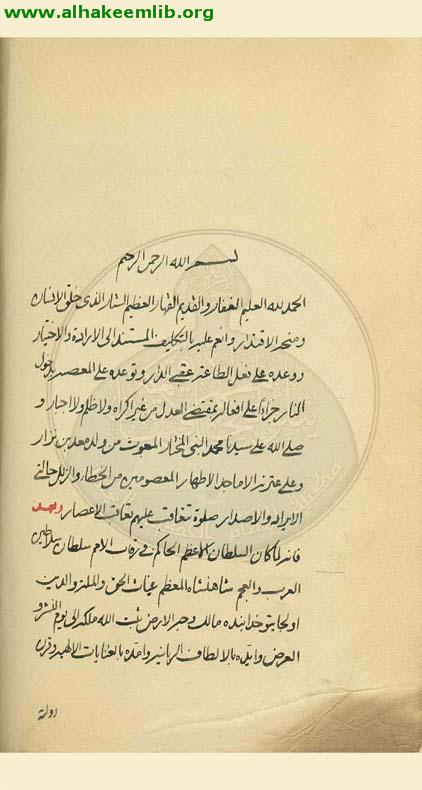 www.alhakeemlib.org
بسم الله الرحمن الرحيم
الحمد لله العليم الغفار والقديم القهار العظيم الستار الذى خلق الانسان
ومنحه الاقتدار وانعم عليه بالتكليف المستند الى الارادة والاختيار
ووعده على فعل الطاعة عقبى الدار وتوعده على المعصية بدخول
النار جزاءً على افعاله بمقتضى العدل من غير اكراه ولا ظلم ولا اجبار و
صلى الله على سيدنا محمد النبى المختار المبعوث من ولد معد بن نزار
وعلى عترته الاماجد الاطهار المعصومين من الخطاء والزلل حالتى
الايراد والاصدار صلوة تتعاقب عليهم تعاقب الاعصار وبعد
فانه لما كان السلطان الاعظم الحاكم فى رقاب الامم سلطان سلاطين
العرب والعجم شاهنشاه المعظم غياث الحق والملة والدين
اولجايتو خدابنده مالك وجه الارض ثبت الله ملكه الى يوم النشر و
العرض وايّده بالالطاف الربانيه وامدّه بالعنايات الالهيه وقرن
دولته